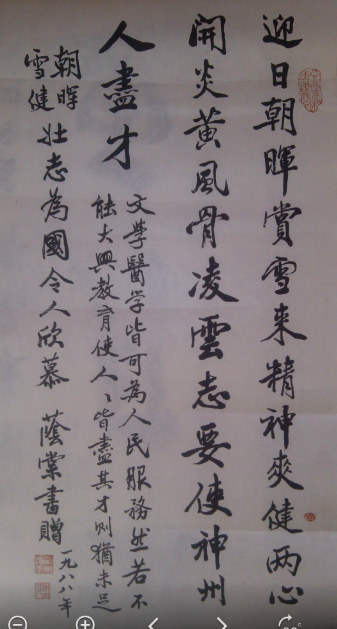 迎日朝暉賞雪来精神爽健两心
開炎黄風骨凌雲志要使神州
人盡才
文學醫学皆可為人民服務然若不
能大興教育使人々皆盡其才则猶未足
朝暉
雪健
壮志為國令人欣慕 蔭棠書贈
一九八八年